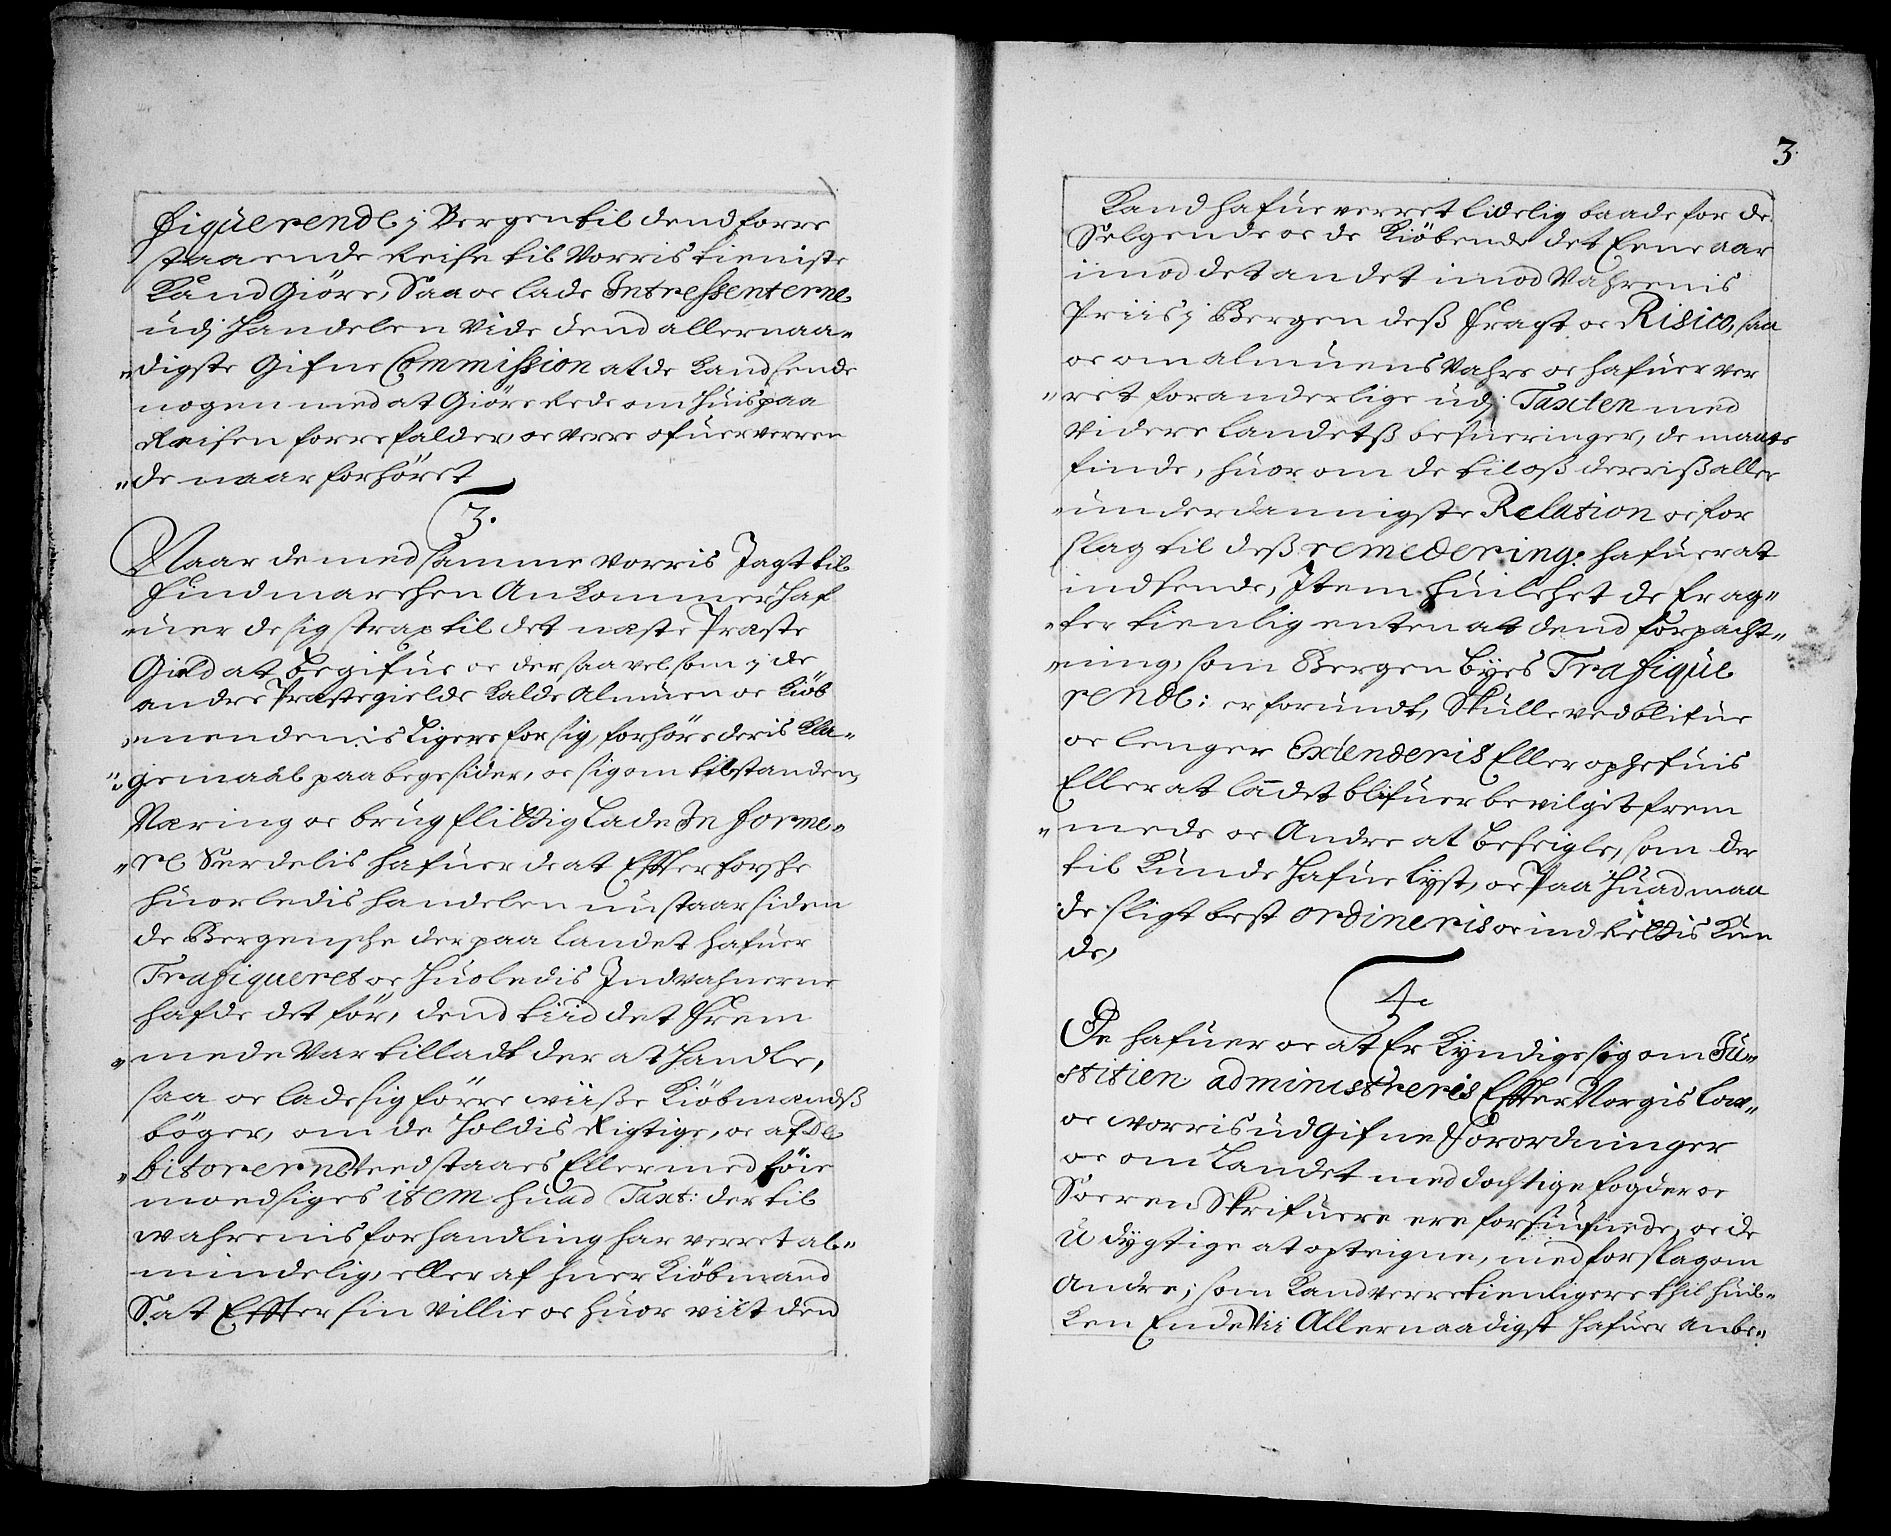 fiquerende j Bergen til dend forre
staaende Reise til Vorris tieniste
Kand Giöre, Saa oc lade Intressenterne
udj Handelen Vide dend allernaa-
digste Gifne Commission at de Kand sende
nogen med at Giöre Rede om huis paa
Reisen forrefalder, oc verre ofuerverren
de naar forhöret
3.
Naar de med samme Vorris Jagt til
Findmarchen AnKommer, haf
uer de sig strax til det næste Præste
Gield at begifue oc der saa vel som j de
andre Præstegielde Kalde Almuen oc Kiöb
mendenis Ligere for sig, forhöre deris Kla-
gemaal paa begesider, oc sig om tilstanden,
Næring oc brug flittig Lade Informe-
re Serdelis hafuer de at Effterforske
huorledis handelen nu staar siden
de Bergenske der paa landet hafuer
Trafiqueret oc huoledis Indvahnerne
hafde det för, dend tiid det Frem
mede Var tilladt der at Handle,
saa oc lade sig förre wiiße Kiöbmandß
böger, om de Holdis Rigtige, oc af De
bitorerne teedstaaes Eller med föie
modsiges item huad Taxt: der til
wahrenis forhandling har verret al-
mindelig, eller af huer Kiöbmand
Sat Effter sin Villie oc huor viit den
3.
Kand hafue verret lidelig baade for de
Selgende oc de Kiöbende det Eene aar
imod det andet imod Vahrenis
Priis j Bergen deß Fragt oc Risico, saa
oc om almuens Vahre oc hafuer ver
ret foranderlige udj Taxten med
Videre landetß besueringer, de maatte
finde, huor om de til oß derriß aller
underdannigste Relation oc for
slag til deß remedering: hafuer at
indsende, Item huilchet de Erag-
ter tienlig enten at dend forpacht-
ning, som Bergen Byes Trafique
rende: er forundt, Skulle ved blifue
oc lenger Extenderis Eller ophefuis
Eller at Landet blifuer bevilget frem
mede oc Andre at beseigle, som der
til Kunde Hafue lyst, oc Paa Huad maa
de sligt best ordineris oc indrettis Kun
de,
4.
De hafuer oc at ErKyndige sig om Ju-
stitien administreris Effter Norgis Low
oc worris udGifne Forordninger
oc om Landet med dochtige fogder oc
Soeren Skrifuere ere forsiufnede, oc de
U dygtige at opteigne, med forslag om
Andre; som Kand verre tienligere thil huil-
Ken Ende Vii Allernaadigst Hafuer Anbe-